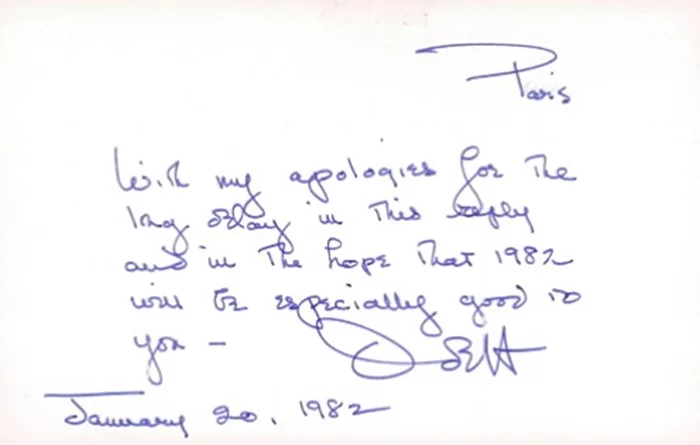 Paris
With my apologies for the
long delay in this reply
and in the hope that 1982
will be especially good to
you —
January 20, 1982